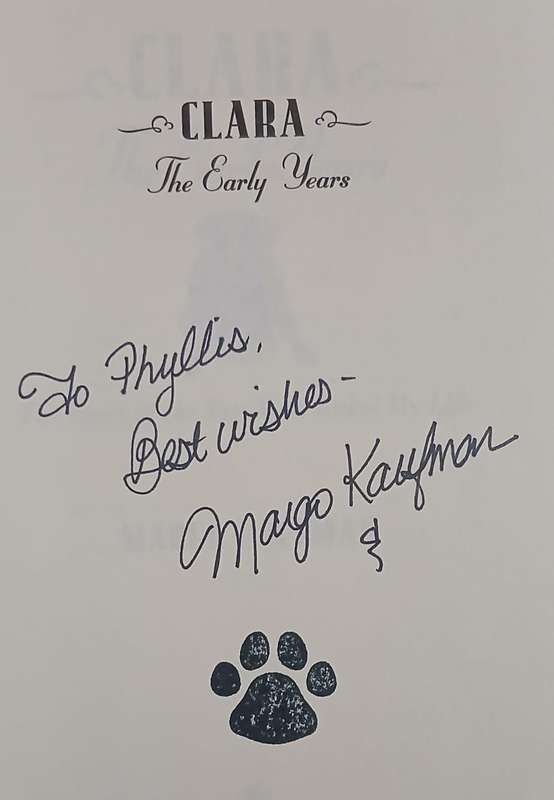 CLARA
The Early Years
To Phyllis,
Best wishes -
Margo Kaufman
&